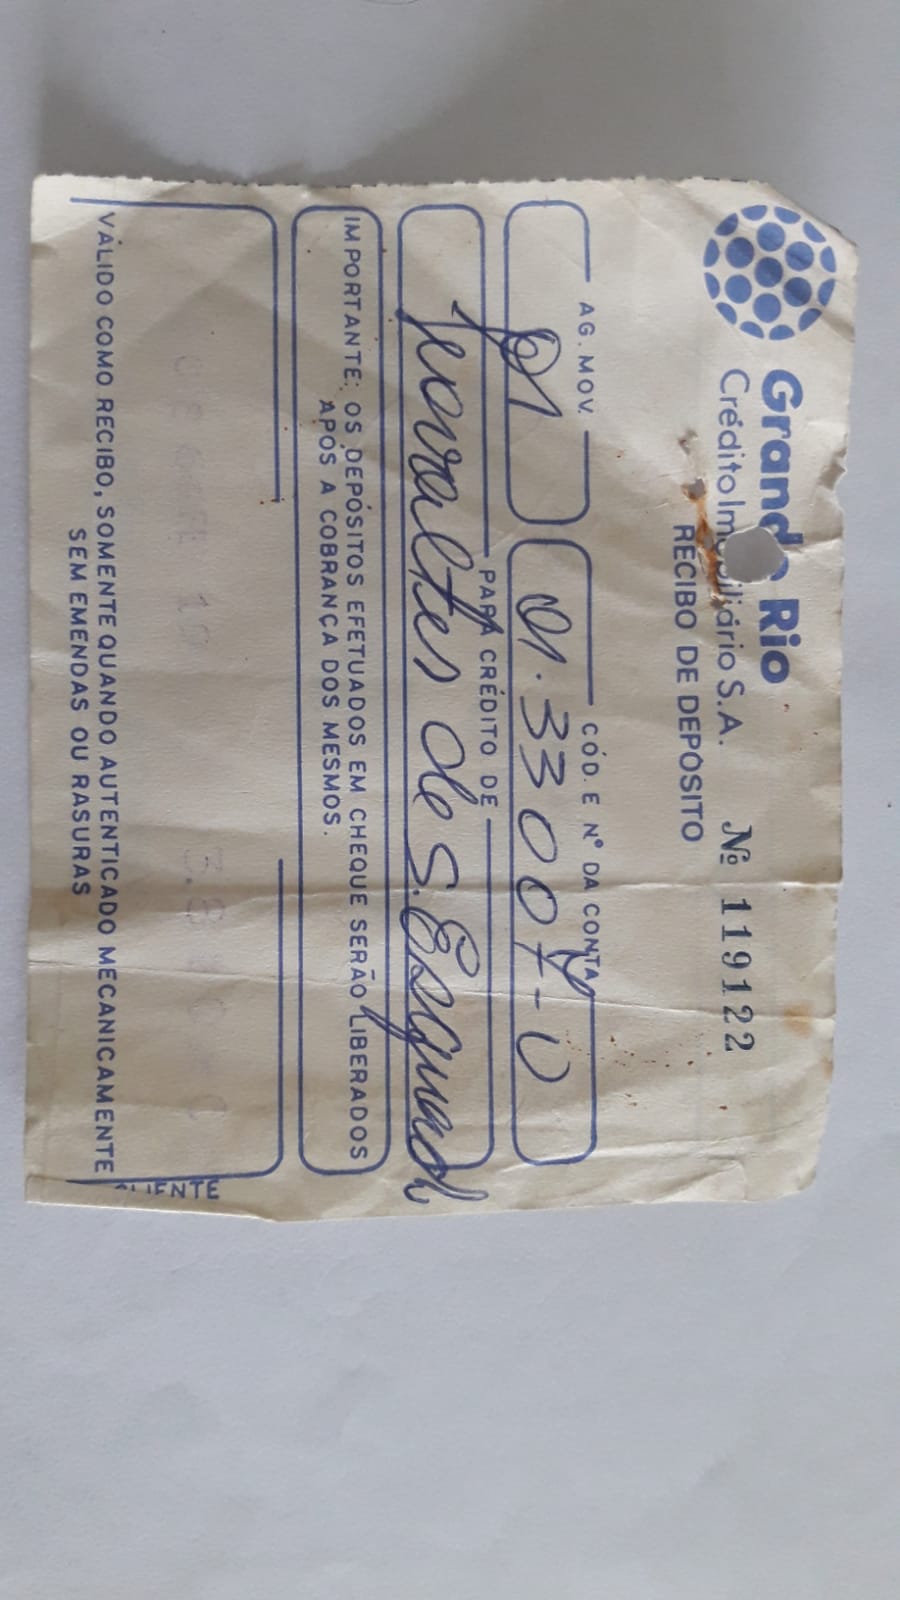 Grande Rio
Crédito Imobiliário S.A. Nº 119122
RECIBO DE DEPÓSITO
AG. MOV. CÓD. E Nº DA CONTA
01 01.33007-0
PARA CRÉDITO DE
de S.
IMPORTANTE: OS DEPÓSITOS EFETUADOS EM CHEQUE SERÃO LIBERADOS
APÓS A COBRANÇA DOS MESMOS.
VÁLIDO COMO RECIBO, SOMENTE QUANDO AUTENTICADO MECANICAMENTE
SEM EMENDAS OU RASURAS